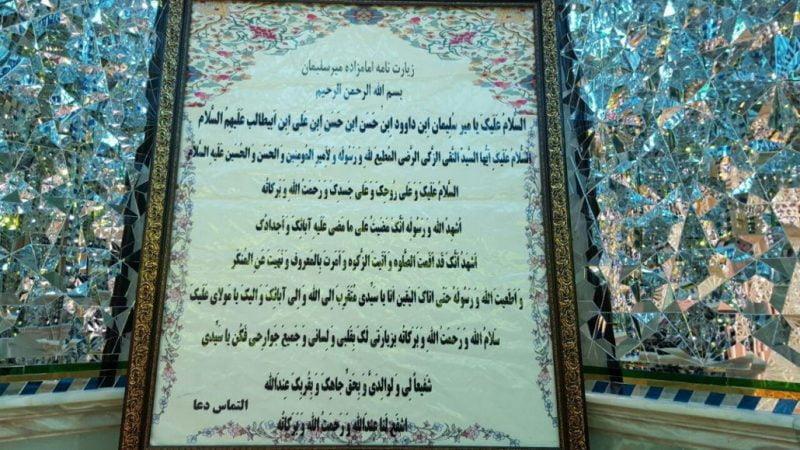 زیارت نامه امامزاده میرسلیمان
بسم الله الرحمن الرحیم
السَّلامُ عَلَیکَ یا میر سلیمان ابن داوود ابن حَسَن ابن حسن ابن علی ابن ابیطالب عَلَیهِمُ السَّلام
السَّلام عَلَیکِ اَیُّها السیِّد التقی الزکی الرَّضی المطیع لله وَ رَسُولِه و لامیر المومنین و الحسن و الحسین علیه السلام
السَّلامُ عَلَیکَ وَ علی رُوحِکَ وَ عَلی جَسَدِکَ وَ رحمت الله وَ بَرَکاتُه
اَشهَدُ الله و رَسولِه اَنَّکَ مَضَیتُ علی ما مَضی عَلَیهِ آبائِکَ وَ اَجدادِک
اَشهَدُ اَنَّکَ قَد اَقَمتَ الصَّلوه وَ آتَیتَ الزَّکوه وَ اَمَرتَ بِالمَعروف وَ نَهَیتَ عَنِ المُنکَر
و اَطَعیتَ الله وَ رَسُولَهُ حَتی اَتاکَ الیَقین اَنا یا سَیِّدی مُتَقَرِب اِلی الله وَ الی آبائِکَ و اِلَیکَ یا مَولای عَلَیکَ
سَلامُ الله وَ رَحمَت الله وَ بَرَکاتُه بِزیارَتی لَکَ بِقَلبی وَ لِسانی وَ جَمیعِ جَوارِحی فَکُن یا سَیِّدی
شَفیعاً لی وَ لِوالِدَیَّ وَ بِحَقِّ جاهِکَ وَ بِقُربِکَ عِندَالله
التماس دعا
اِشفَع لَنا عِندَالله وَ رَحمتُ الله وَ بَرَکاتُه